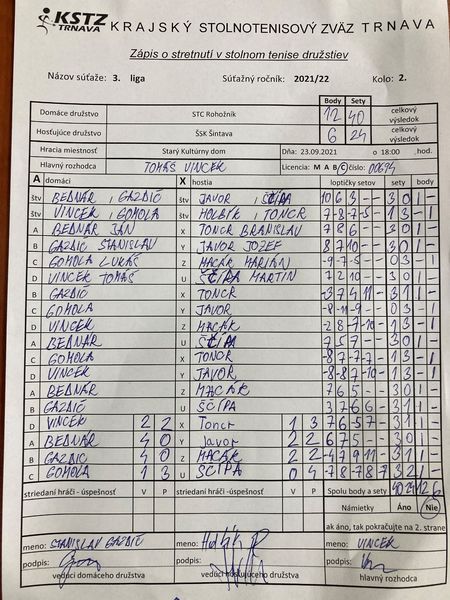 KSTZ TRNAVA KRAJSKÝ STOLNOTENISOVÝ ZVÄZ TRNAVA
Zápis o stretnutí v stolnom tenise družstiev
Názov súťaže: 3. liga Súťažný ročník: 2021/22 Kolo: 2.
Body Sety
Domáce družstvo STC Rohožník 12 40 celkový výsledok
Hosťujúce družstvo ŠSK Šintava 6 24 celkový výsledok
Hracia miestnosť Starý Kultúrny dom Dňa: 23.09.2021 o 18:00 hod.
Hlavný rozhodca TOMÁŠ VINCEK Licencia: M A B C číslo: 00694
A domáci X hostia loptičky setov sety body
štv BEDNÁR, GAZDIČ štv JAVOR, ŠČÍPA 10 6 3 - - 3 0 1 -
štv VINCEK, GOMOLA štv HOLBÍK, TONCR -7 -8 7 -5 - 1 3 - 1
A BEDNÁR JÁN X TONCR BRANISLAV 7 8 6 - - 3 0 1 -
B GAZDIČ STANISLAV Y JAVOR JOZEF 8 7 10 - - 3 0 1 -
C GOMOLA LUKÁŠ Z MACÁK MARIÁN -9 -7 -5 - - 0 3 - 1
D VINCEK TOMÁŠ U ŠČÍPA MARTIN 7 2 10 - - 3 0 1 -
B GAZDIČ X TONCR -3 7 4 11 - 3 1 1 -
C GOMOLA Y JAVOR -8 -11 -9 - - 0 3 - 1
D VINCEK Z MACÁK -2 8 -7 -10 - 1 3 - 1
A BEDNÁR U ŠČÍPA 7 5 7 - - 3 0 1 -
C GOMOLA X TONCR -8 7 -7 -7 - 1 3 - 1
D VINCEK Y JAVOR -8 -8 7 -10 - 1 3 - 1
A BEDNÁR Z MACÁK 7 6 5 - - 3 0 1 -
B GAZDIČ U ŠČÍPA 3 7 6 6 - 3 1 1 -
D VINCEK 2 2 X Toncr 1 3 7 6 -5 7 - 3 1 1 -
A BEDNÁR 4 0 Y Javor 2 2 6 7 5 - - 3 0 1 -
B GAZDIČ 4 0 Z MACÁK 2 2 -4 7 9 11 - 3 1 1 -
C GOMOLA 1 3 U ŠČÍPA 0 4 -7 8 -7 8 7 3 2 1 -
striedaní hráči - úspešnosť V P striedaní hráči - úspešnosť V P Spolu body a sety 40 24 12 6
Námietky Áno Nie
ak áno, tak pokračujte na 2. strane
meno: STANISLAV GAZDIČ meno: meno: VINCEK
podpis: podpis: podpis:
vedúci domáceho družstva vedúci hosťujúceho družstva hlavný rozhodca